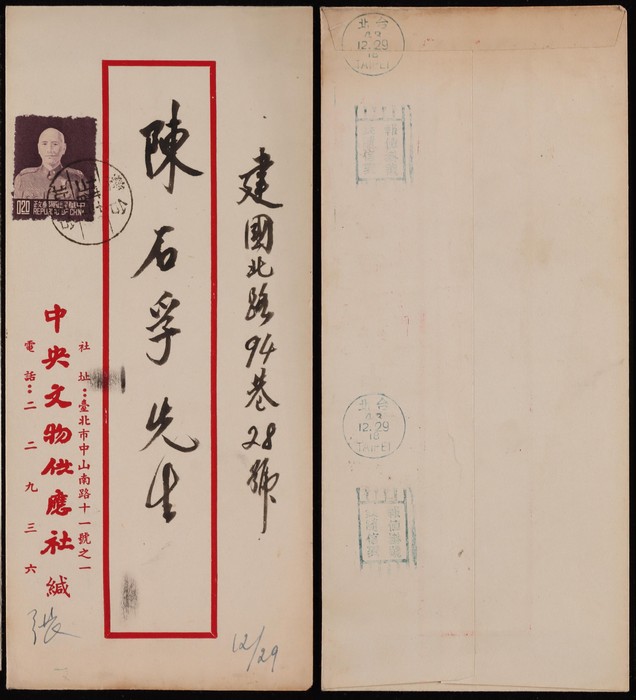 建國北路94巷28號
陳石孚先生
0.20
中華民國郵政
REPUBLIC OF CHINA
社址：臺北市中山南路十一號之一
中央文物供應社緘
電話：二二九三六
張
12/29
台北
43
12.29
16
TAIPEI
台北
43
12.29
16
TAIPEI